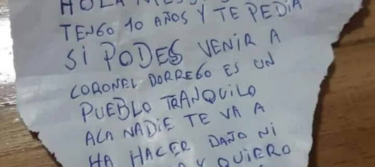 HOLA
TENGO 10 AÑOS Y TE PEDIA
SI PODES VENIR A
CORONEL DORREGO ES UN
PUEBLO TRANQUILO
ACA NADIE TE VA A
HA HACER DAÑO NI
Y QUIERO